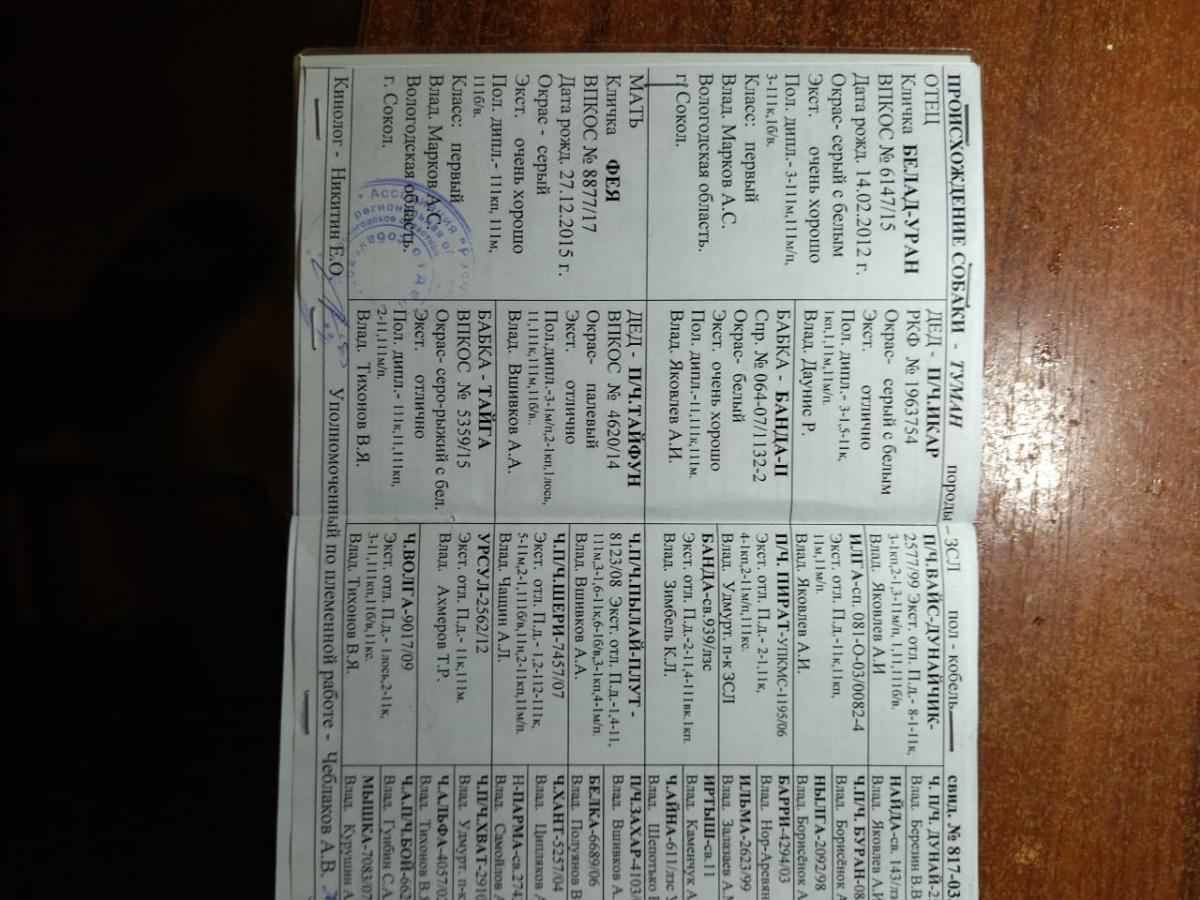 ПРОИСХОЖДЕНИЕ СОБАКИ - ТУМАН породы – ЗСЛ пол - кобель свид. № 817-03
ОТЕЦ
Кличка БЕЛАД-УРАН
ВПКОС № 6147/15
Дата рожд. 14.02.2012 г.
Окрас- серый с белым
Экст. очень хорошо
Пол. дипл.- 3-111м,111м/п,
3-111к,1б/в.
Класс: первый
Влад. Марков А.С.
Вологодская область.
г. Сокол.
МАТЬ
Кличка ФЕЯ
ВПКОС № 8877/17
Дата рожд. 27.12.2015 г.
Окрас - серый
Экст. очень хорошо
Пол. дипл.- 111кп,111м,
111б/в.
Класс: первый
Влад. Марков А.С.
Вологодская область.
г. Сокол.
ДЕД - П/Ч.ИКАР
РКФ № 1963754
Окрас- серый с белым
Экст. отлично
Пол. дипл.- 3-1,5-11к,
1кп,1,11м,11м/п.
Влад. Даунис Р.
БАБКА - БАНДА-П
Спр. № 064-07/1132-2
Окрас- белый
Экст. очень хорошо
Пол. дипл.-11,111к,111м.
Влад. Яковлев А.И.
ДЕД - П/Ч.ТАЙФУН
ВПКОС № 4620/14
Окрас- палевый
Экст. отлично
Пол.дипл.-3-1м/п,2-1кп,1лось,
11,111к,111м,11б/в..
Влад. Вшивков А.А.
БАБКА - ТАЙГА
ВПКОС № 5359/15
Окрас- серо-рыжий с бел.
Экст. отлично
Пол. дипл.- 111к,11,111кп,
2-11,111м/п.
Влад. Тихонов В.Я.
П/Ч.ВАЙС-ДУНАЙЧИК-
2577/99 Экст. отл. П.д.- 8-1-11к,
3-1кп,2-1,3-11м/п,1,11,111б/в.
Влад. Яковлев А.И
ИЛГА-сп. 081-О-03/0082-4
Экст. отл. П.д.-11к,11кп,
11м,11м/п.
Влад. Яковлев А.И.
П/Ч. ПИРАТ-УПКМС-1195/06
Экст. отл. П.д.- 2-1,11к,
4-1кп,2-11м/п,111кс.
Влад. Удмурт. п-к ЗСЛ
БАНДА-св.939/лзс
Экст. отл. П.д.-2-11,4-111вк.1кп.
Влад. Зимбель К.Л.
Ч.П/Ч.ПЫЛАЙ-ПЛУТ -
8123/08 Экст. отл. П.д.-1,4-11,
111м,3-1,6-11к,6-1б/в,3-1кп,4-1м/п.
Влад. Вшивков А.А.
Ч.П/Ч.ШЕРИ-7457/07
Экст. отл. П.д.- 1,2-112-111к,
5-11м,2-1,111б/в,11п,2-11кп,11м/п.
Влад. Чащин А.Л.
УРСУЛ-2562/12
Экст. отл. П.д.- 11к,111м.
Влад. Ахмеров Т.Р.
Ч.ВОЛГА-9017/09
Экст. отл. П.д.- 1лось,2-11к,
3-11,111кп,11б/в,11кс.
Влад. Тихонов В.Я.
Ч. П/Ч. ДУНАЙ-2
Влад. Березин В.В
НАЙДА-св. 143/лз
Влад. Яковлев А.И
Ч.П/Ч. БУРАН-08
Влад. Борисёнок
НЫЛГА-2092/98
Влад. Борисёнок А
БАРРИ-4294/03
Влад. Нор-Аревян
ИЛЬМА-2623/99
Влад. Залазаев А.М
ИРТЫШ-св.11
Влад. Каменчук А
Ч.АЙНА-611/лзс
Влад. Шепотько
П/Ч.ЗАХАР-4103/
Влад. Вшивков А.
БЕЛКА-6689/06
Влад. Полуянов В
Ч.ХАНТ-5257/04
Влад. Ципляков А
Н-ПАРМА-св.274
Влад. Самойлов А
Ч.П/Ч.ХВАТ-2910
Влад. Удмурт. п-к
Ч.АЛЬФА-4057/02
Влад. Тихонов В.
Ч.А.П/Ч.БОЙ-663
Влад. Гунбин С.А
МЫШКА-7083/07
Влад. Курушин А
Кинолог - Никитин Е.О. Уполномоченный по племенной работе - Чеблаков А.В.